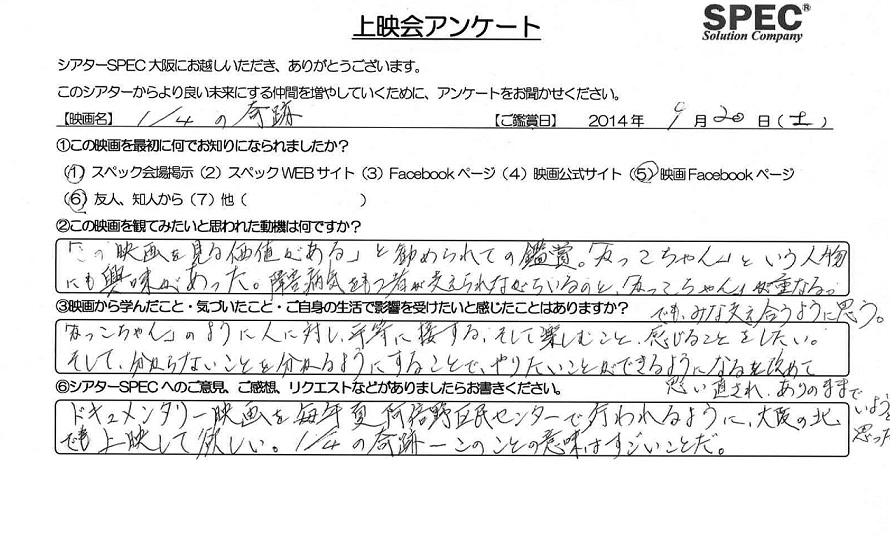 上映会アンケート
SPEC®
Solution Company
シアターSPEC大阪にお越しいただき、ありがとうございます。
このシアターからより良い未来にする仲間を増やしていくために、アンケートをお聞かせください。
【映画名】 1/4の奇跡 【ご鑑賞日】 2014年 9月20日(土)
①この映画を最初に何でお知りになられましたか？
(1) スペック会場掲示 (2) スペックWEBサイト (3) Facebookページ (4) 映画公式サイト (5) 映画Facebookページ
(6) 友人、知人から (7) 他 ( )
②この映画を観てみたいと思われた動機は何ですか？
「この映画を見る価値がある」と勧められての鑑賞。「友っこちゃん」という人物
にも興味があった。障害病気を持つ者が支えられながらいるのと、「友っこちゃん」が重なるっ
③映画から学んだこと・気づいたこと・ご自身の生活で影響を受けたいと感じたことはありますか？
でも、みな支え合うように思う。
「友っこちゃん」のように人に対し、平等に接する、そして楽しむこと、感じることをしたい。
そして、分からないことを分かるようにすることで、やりたいことができるようになると改めて
思い直され、ありのままで
いよう
思った
⑥シアターSPECへのご意見、ご感想、リクエストなどがありましたらお書きください。
ドキュメンタリー映画を毎年夏阿倍野区民センターで行われるように、大阪の北
でも上映して欲しい。1/4の奇跡ーこのことの意味はすごいことだ。